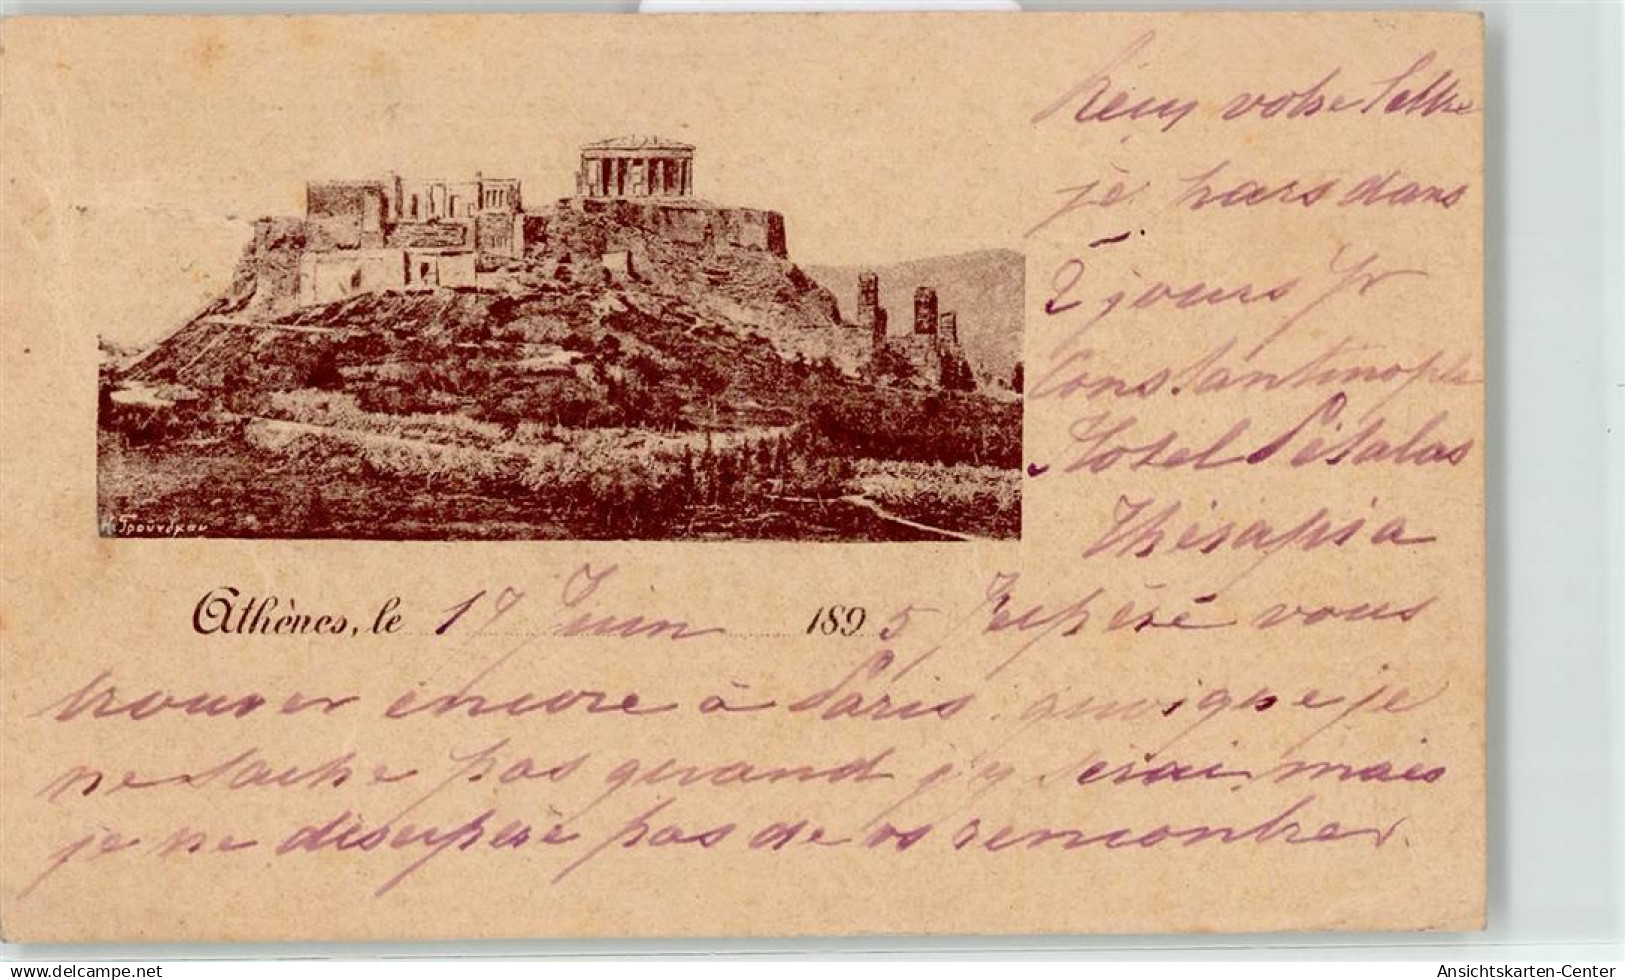 Reçu votre lettre
je pars dans
2 jours pr
Constantinople
Hotel Pétalas
Thérapia
Α. Γρούνδμαν
Athènes, le 17 Juin 1895 J'espére vous
trouver encore à Paris, quoique je
ne sache pas quand j'y serai, mais
je ne deséspère pas de vs rencontrer
www.delcampe.net
Ansichtskarten-Center